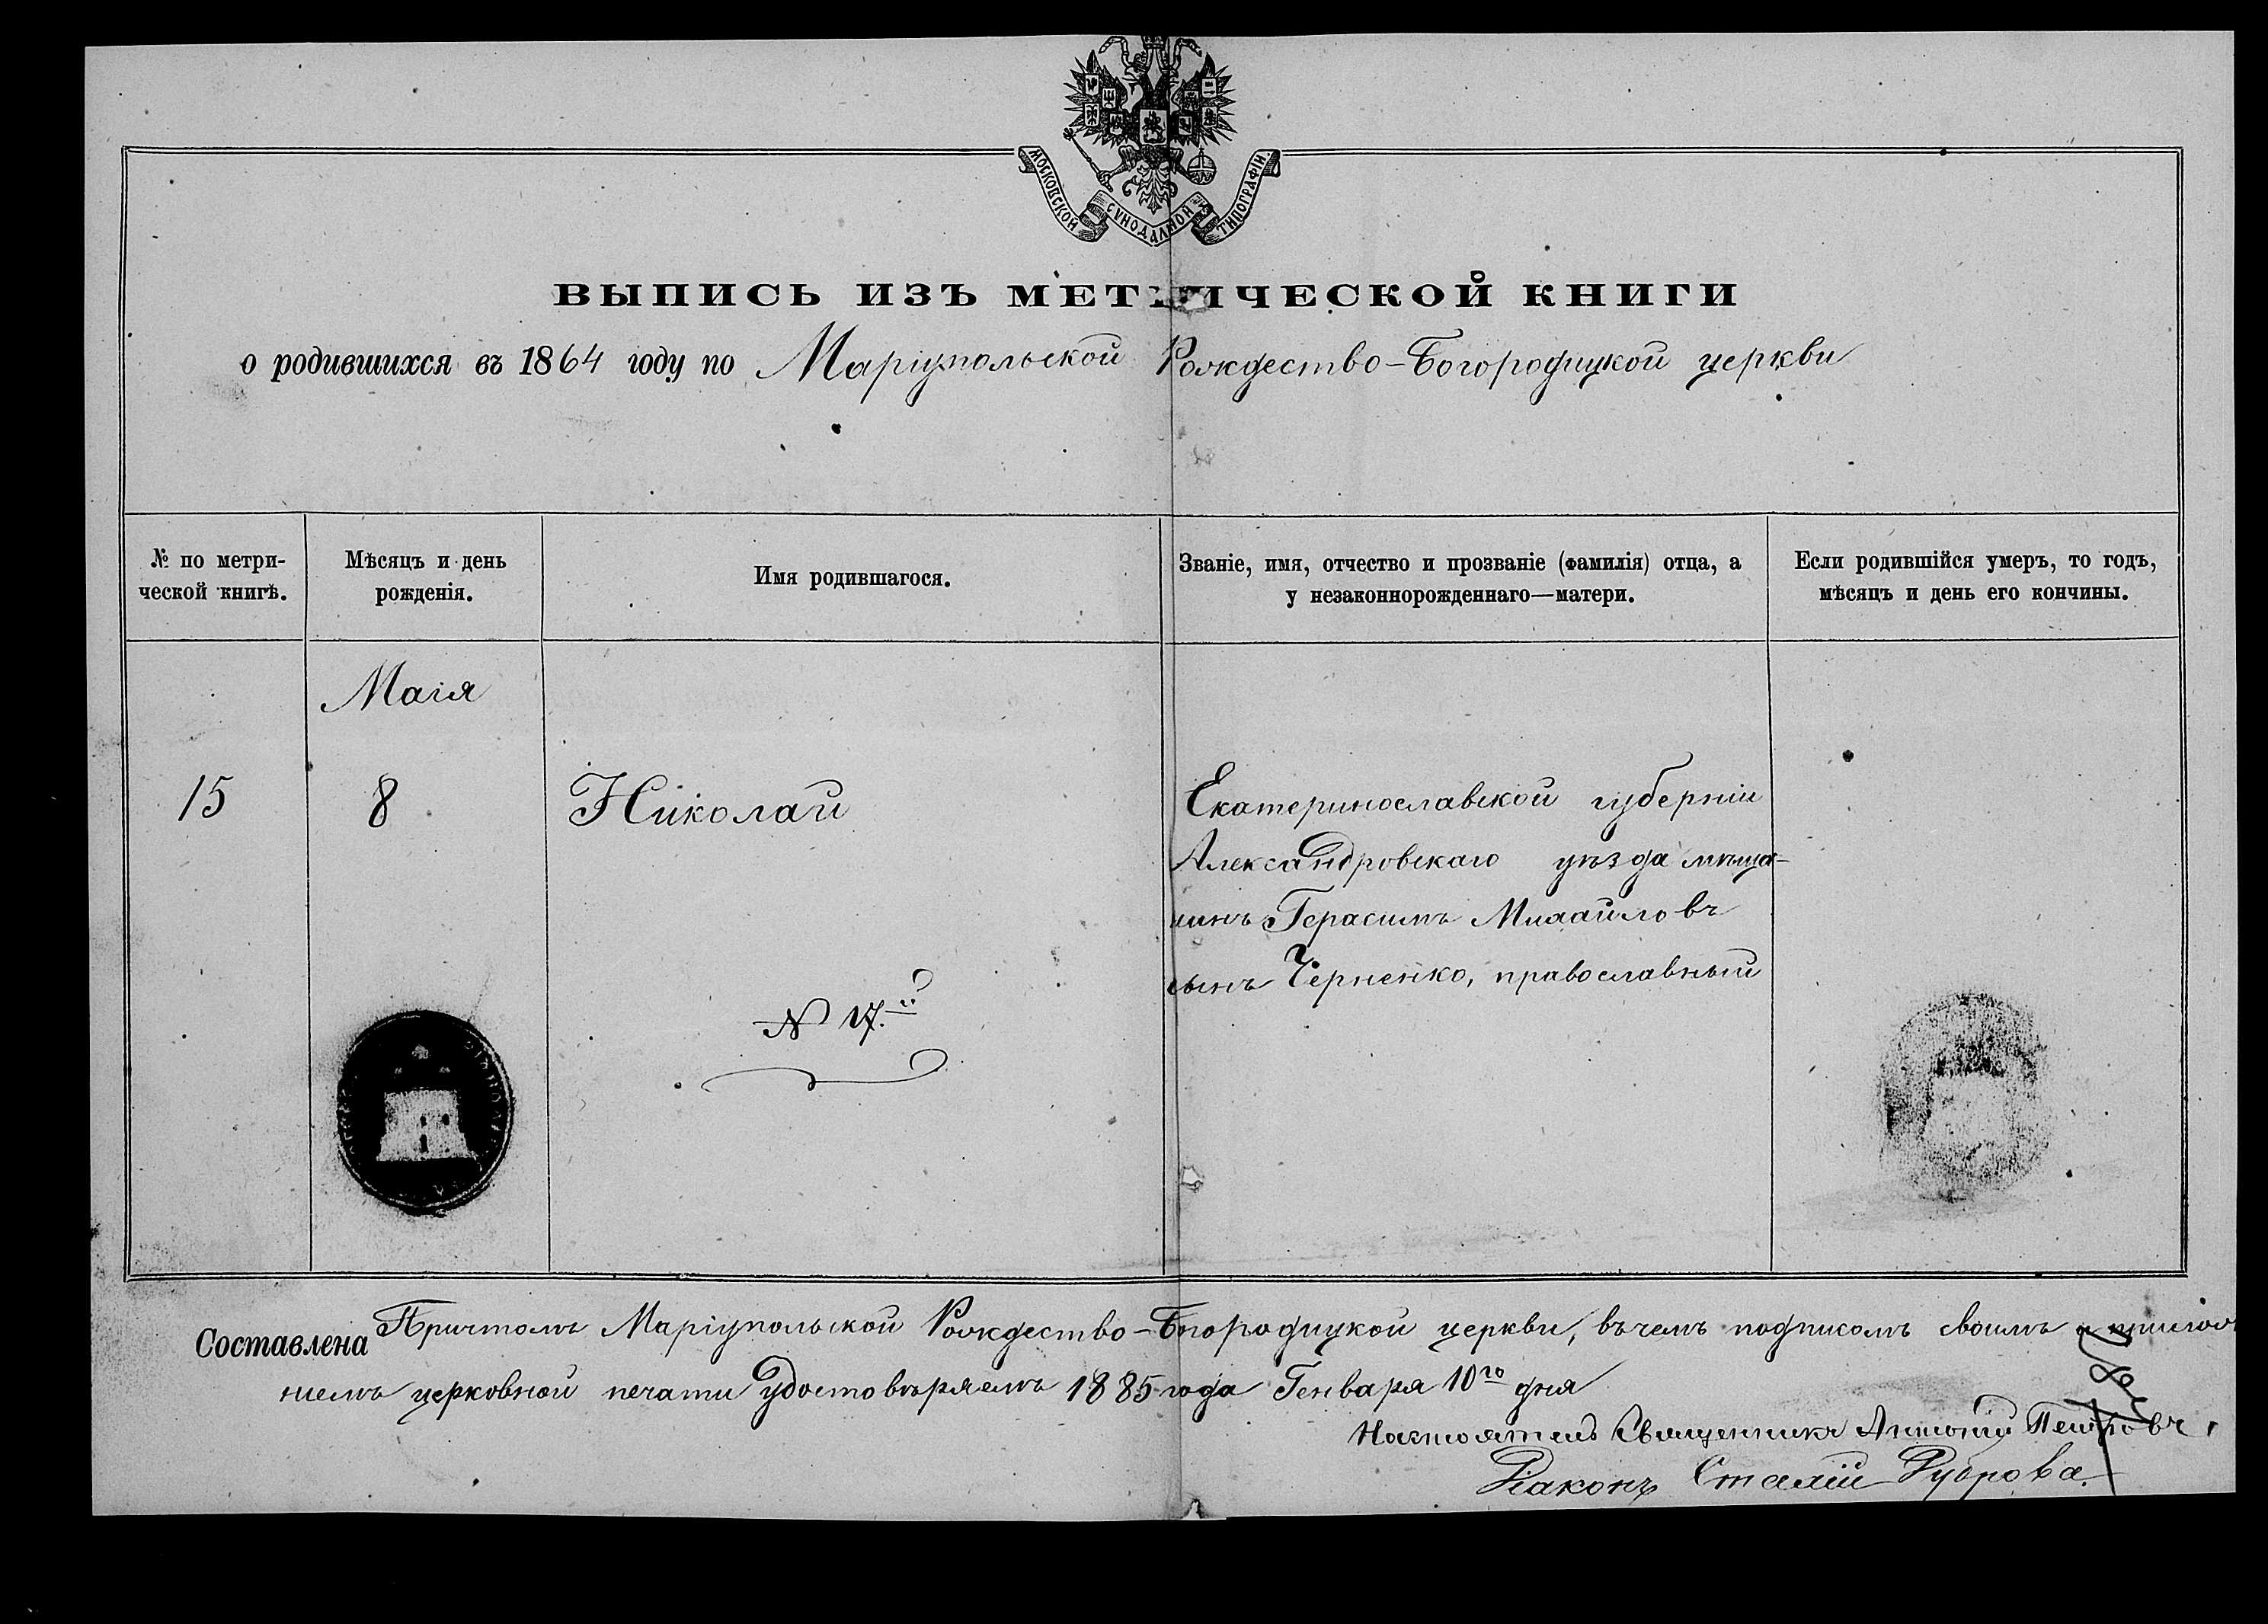 МОСКОВСКОЙ СѴНОДАЛЬНОЙ ТИПОГРАФІИ.
ВЫПИСЬ ИЗЪ МЕТРИЧЕСКОЙ КНИГИ
о родившихся въ 1864 году по Маріупольской Рождество-Богородицкой церкви
№ по метри-
ческой книгѣ.
Мѣсяцъ и день
рожденія.
Имя родившагося.
Званіе, имя, отчество и прозваніе (фамилія) отца, а
у незаконнорожденнаго—матери.
Если родившійся умеръ, то годъ,
мѣсяцъ и день его кончины.
Маія
15
8
Николай
Екатеринославской губерніи
Александровскаго уѣзда мѣща-
нинъ Герасимъ Михайловъ
сынъ Черненко, православный
№ 17.й
Составлена Причтомъ Маріупольской Рождество-Богородицкой церкви, въ чемъ подписомъ своимъ и прилож
ніемъ церковной печати удостовѣряемъ 1885 года Генваря 10го дня
Настоятель Священникъ Антоній Петровъ,
Діаконъ